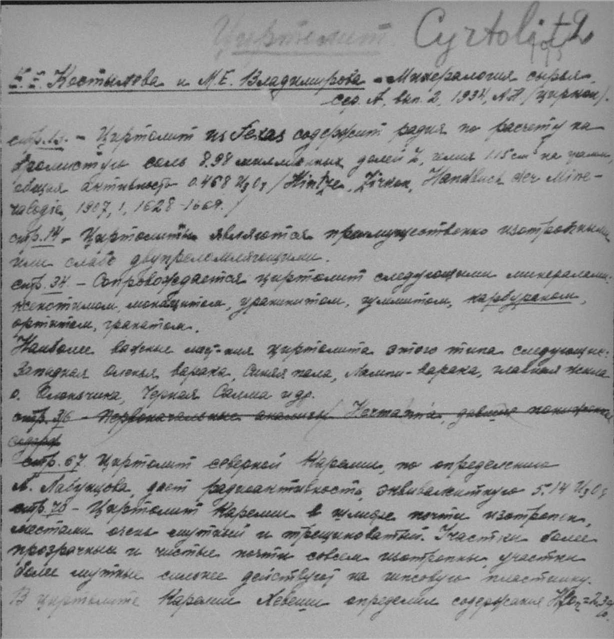 Циртолит Cyrtolit
Е.Е. Костылева и М.Е. Владимирова - Минералогия сырья
сер. А, вып. 2, 1934, А.Н. /Циркон/.
- Циртолит из Texas содержит радия по расчету на
бромистую соль 8.98 миллионных долей %, гелия 1.15 cm³ на грамм
общая активность 0.468 U₃O₈ / Hintze, Zirkon, Handbuch der Mine-
ralogie, 1907, 1, 1628-1669. /
стр. 14 - Циртолиты являются преимущественно изотропными
или слабо двупреломляющими.
стр. 34 - Сопровождается циртолит следующими минералами:
ксенотимом, монацитом, уранинитом, гуммитом, карбураном,
ортитом, гранатом.
Наиболее важные мест-ния циртолита этого типа следующие:
Западная Оленья варака, Синяя пала, Лампи-варака, главная жила
о. Плотичина, Черная Салма и др.
стр. 36 - Первоначальные анализы
стр. 67 Циртолит северной Карелии, по определению
А. Лабунцова, дает радиоактивность, эквивалентную 5.14 U₃O₈
стр. 70 - Циртолит Карелии в шлифе почти изотропен,
местами очень мутный и трещиноватый. Участки более
прозрачные и чистые почти совсем изотропны, участки
более мутные сильнее действуют на гипсовую пластинку.
В циртолите Карелии Хевеши определил содержание HfO₂ =